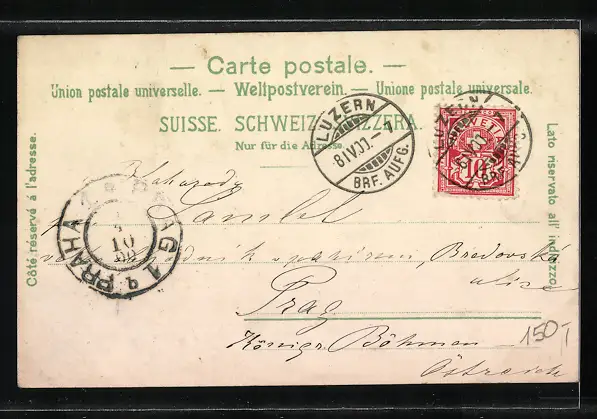 — Carte postale. —
Union postale universelle. — Weltpostverein. — Unione postale universale.
SUISSE. SCHWEIZ. SVIZZERA.
Nur für die Adresse.
Côté réservé à l'adresse.
Lato riservato all' indirizzo.
LUZERN
8 IV 00 - 7
BRF. AUFG.
LUZERN
HELVETIA
10
PRAHA 1 * PRAG 1
10
Prag
Bredovská
ulice
Königr. Böhmen
Östreich
150,-